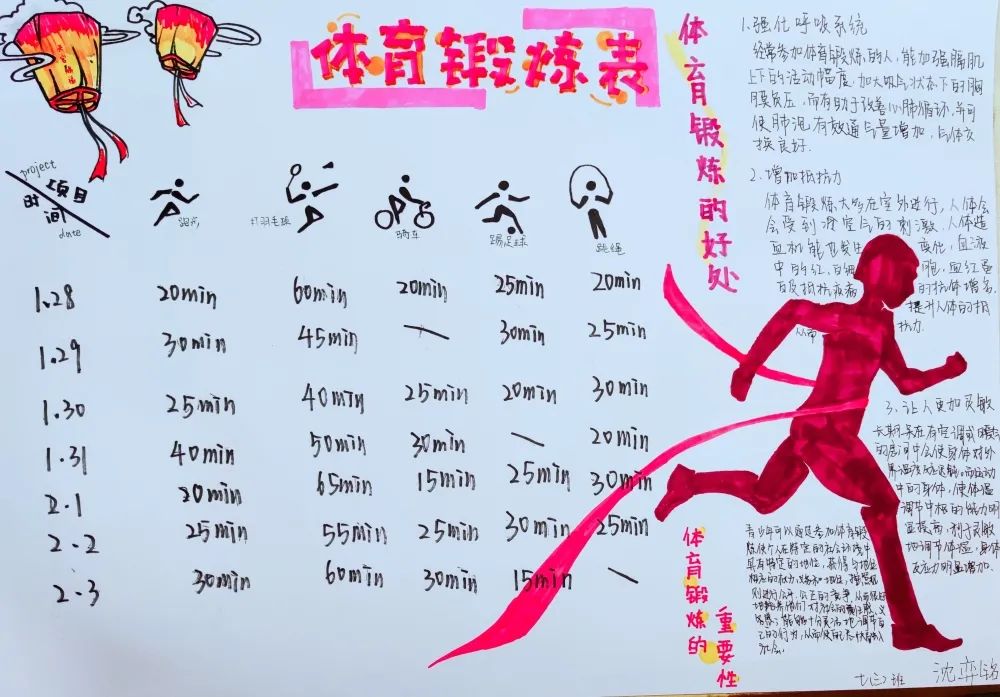 体育锻炼表
project
项目
时间
date
跑步
打羽毛球
骑车
踢足球
跳绳
1.28 20min 60min 20min 25min 20min
1.29 30min 45min — 30min 25min
1.30 25min 40min 25min 20min 30min
1.31 40min 50min 30min — 20min
2.1 20min 65min 15min 25min 30min
2.2 25min 55min 25min 30min 25min
2.3 30min 60min 30min 15min —
体育锻炼的好处
1.强化呼吸系统
经常参加体育锻炼的人,能加强膈肌
上下的活动幅度 加大吸气状态下的胸
膜负压,而有助于改善心肺循环,并可
使肺泡有效通气量增加,气体交
换良好.
2.增加抵抗力
体育锻炼大多在室外进行,人体会
会受到冷空气的刺激,人体造
血机能也发生 变化,血液
中的红、白细 胞,血红蛋
白及抵抗疾病 的抗体增多.
从而 提升人体的抵
抗力.
3.让人更加灵敏
长期呆在有空调或暖气
的房间中会使身体对外
中的身体,使体温
调节中枢的能力明
显提高,利于灵敏
地调节体温,身体
反应力明显增加.
体育锻炼的
重要性
青少年可以通过参加体育锻
炼使个人在特定的社会环境中
具有特定的地位,获得与地位
则进行公平、公正的竞争,从而很好
己的行为,从而使自己尽快适应
社会.
七(三)班 沈弈铭